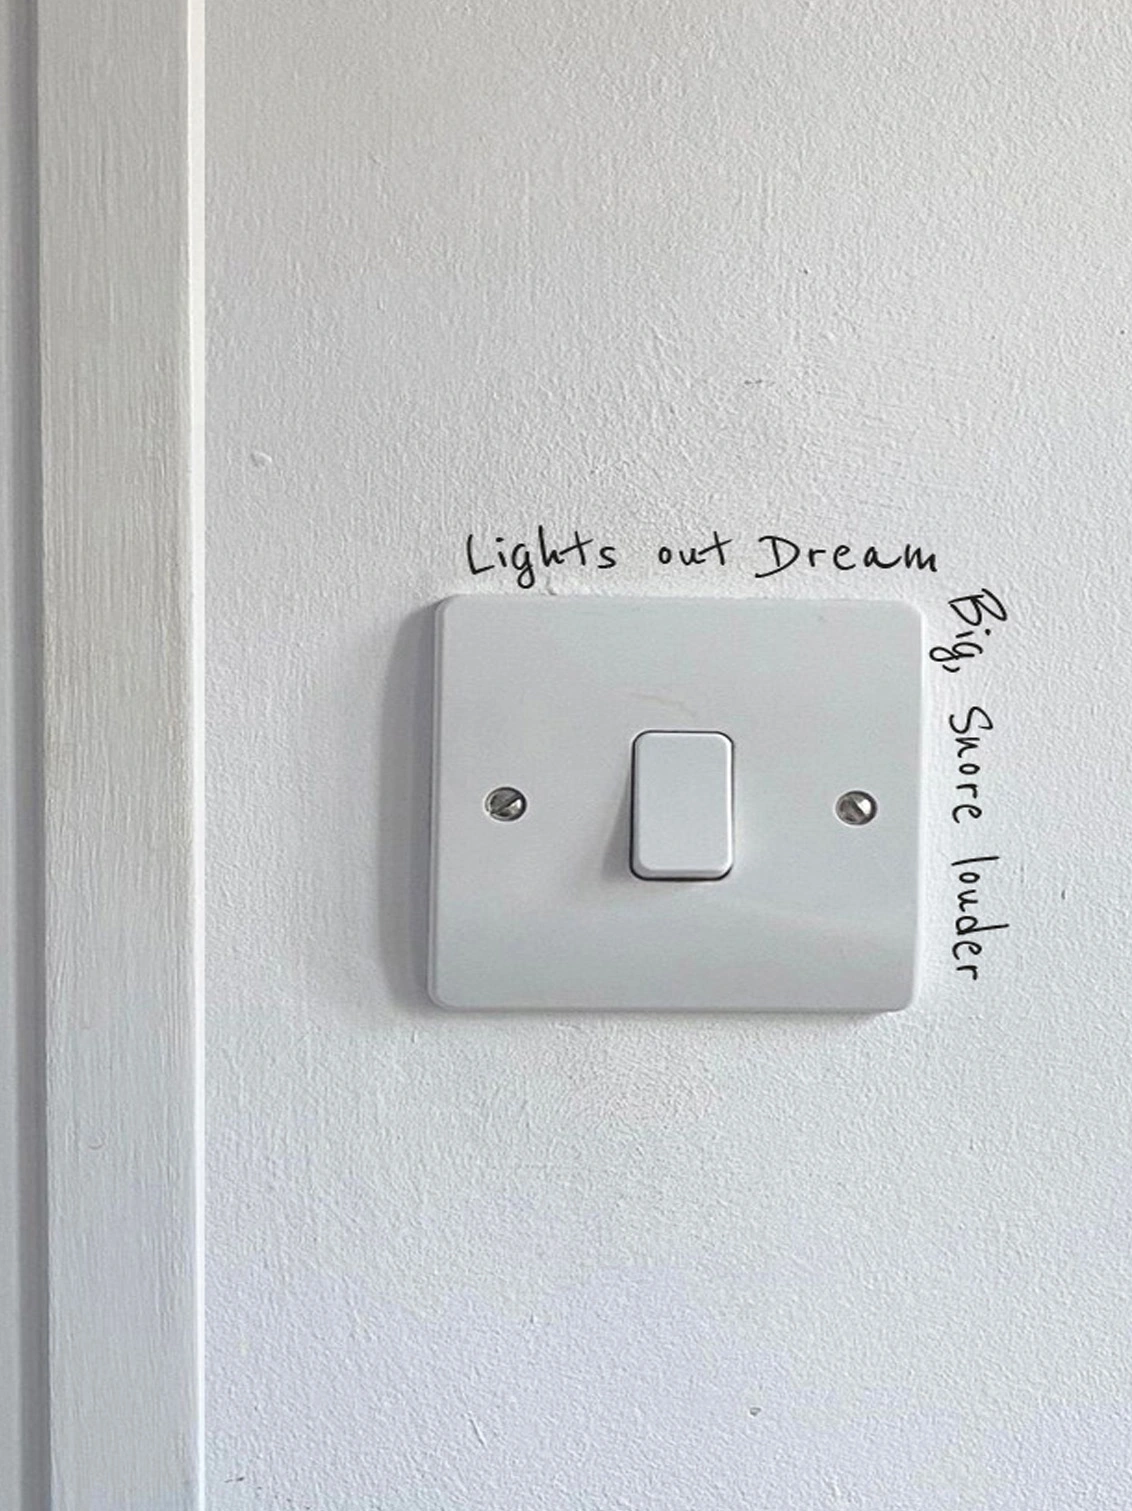 Lights out Dream
Big, Snore louder